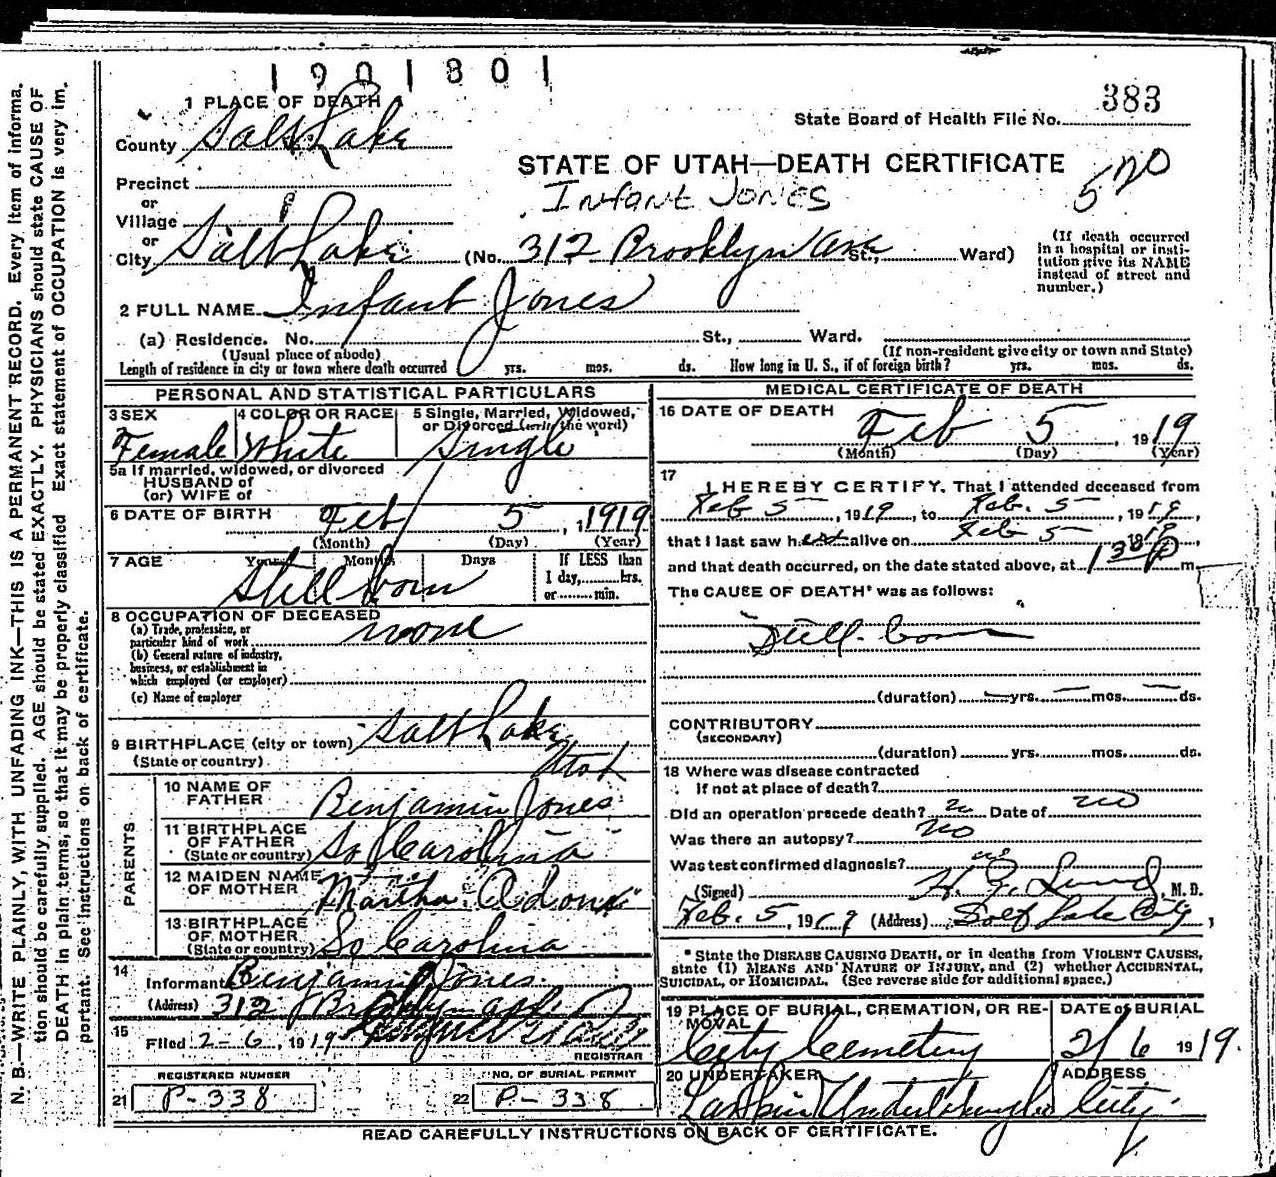 1901801
1 PLACE OF DEATH
County Salt Lake
State Board of Health File No. 383
STATE OF UTAH—DEATH CERTIFICATE
Infant Jones
520
Precinct
or
Village
or
City Salt Lake (No. 312 Brooklyn Ave St., Ward)
(If death occurred in a hospital or insti-
tution give its NAME
instead of street and
number.)
2 FULL NAME Infant Jones
(a) Residence. No. St., Ward.
(Usual place of abode) (If non-resident give city or town and State)
Length of residence in city or town where death occurred yrs. mos. ds. How long in U. S., if of foreign birth? yrs. mos. ds.
PERSONAL AND STATISTICAL PARTICULARS
3 SEX 4 COLOR OR RACE 5 Single, Married, Widowed,
or Divorced (write the word)
Female White Single
5a If married, widowed, or divorced
HUSBAND of
(or) WIFE of
6 DATE OF BIRTH Feb 5, 1919
(Month) (Day) (Year)
7 AGE Years Months Days If LESS than
1 day, hrs.
or min.
Still born
8 OCCUPATION OF DECEASED
(a) Trade, profession, or
particular kind of work none
(b) General nature of industry,
business, or establishment in
which employed (or employer)
(c) Name of employer
9 BIRTHPLACE (city or town) Salt Lake
(State or country) Utah
PARENTS
10 NAME OF
FATHER Benjamin Jones
11 BIRTHPLACE
OF FATHER
(State or country) So Carolina
12 MAIDEN NAME
OF MOTHER Martha
13 BIRTHPLACE
OF MOTHER
(State or country) So Carolina
14
Informant Benjamin Jones
(Address) 312 Brooklyn ave
15
Filed 2-6, 1919
REGISTRAR
REGISTERED NUMBER NO. OF BURIAL PERMIT
21 P-338 22 P-338
MEDICAL CERTIFICATE OF DEATH
16 DATE OF DEATH
Feb 5, 1919
(Month) (Day) (Year)
17
I HEREBY CERTIFY, That I attended deceased from
Feb 5, 1919, to Feb. 5, 1919,
that I last saw her alive on Feb 5 1919,
and that death occurred, on the date stated above, at 130 P m
The CAUSE OF DEATH* was as follows:
Still-born
(duration) yrs. mos. ds.
CONTRIBUTORY
(SECONDARY)
(duration) yrs. mos. ds.
18 Where was disease contracted
if not at place of death?
Did an operation precede death? no Date of no
Was there an autopsy? no
Was test confirmed diagnosis? no
(Signed) H. Z. Lund, M. D.
Feb. 5, 1919 (Address) Salt Lake City,
* State the DISEASE CAUSING DEATH, or in deaths from VIOLENT CAUSES,
state (1) MEANS AND NATURE OF INJURY, and (2) whether ACCIDENTAL,
SUICIDAL, or HOMICIDAL. (See reverse side for additional space.)
19 PLACE OF BURIAL, CREMATION, OR RE-
MOVAL DATE of BURIAL
City Cemetery 2/6 1919.
20 UNDERTAKER ADDRESS
Larkin Undertaking Co City
READ CAREFULLY INSTRUCTIONS ON BACK OF CERTIFICATE.
N. B.—WRITE PLAINLY, WITH UNFADING INK—THIS IS A PERMANENT RECORD. Every item of informa-
tion should be carefully supplied. AGE should be stated EXACTLY. PHYSICIANS should state CAUSE OF
DEATH in plain terms, so that it may be properly classified. Exact statement of OCCUPATION is very im-
portant. See instructions on back of certificate.